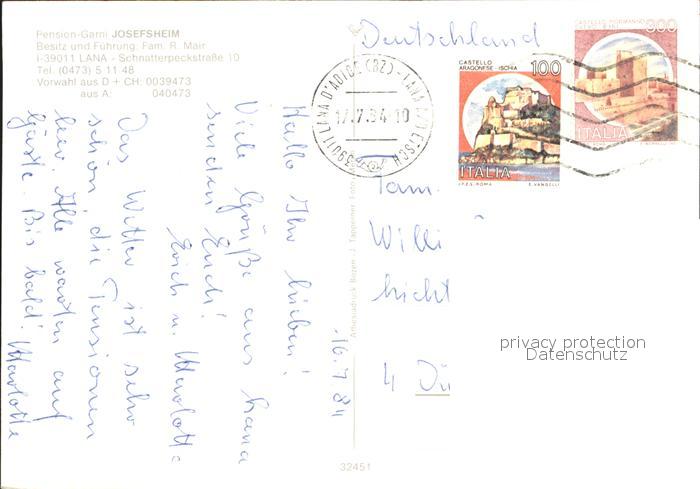 Pension-Garni JOSEFSHEIM
Besitz und Führung: Fam. R. Mair
I-39011 LANA - Schnatterpeckstraße 10
Tel. (0473) 5 11 48
Vorwahl aus D + CH: 0039473
aus A: 040473
16.7.84
Hallo Ihr lieben!
Viele Grüße aus Lana
senden Euch!
Erich u. Marlotte
Das Wetter ist sehr
schön, die Pensionen
leer. Alle warten auf
Gäste. Bis bald! Marlotte
Deutschland
39011 LANA D'ADIGE (BZ) - LANA A/D ETSCH
17.7.84-10
CASTELLO
ARAGONESE - ISCHIA
100
ITALIA
I.P.Z.S. ROMA E. VANGELLI
CASTELLO NORMANNO
300
ITALIA
Fam.
Willi
4 Dü
Athesiadruck Bozen - J. Tappeiner
32451
privacy protection
Datenschutz